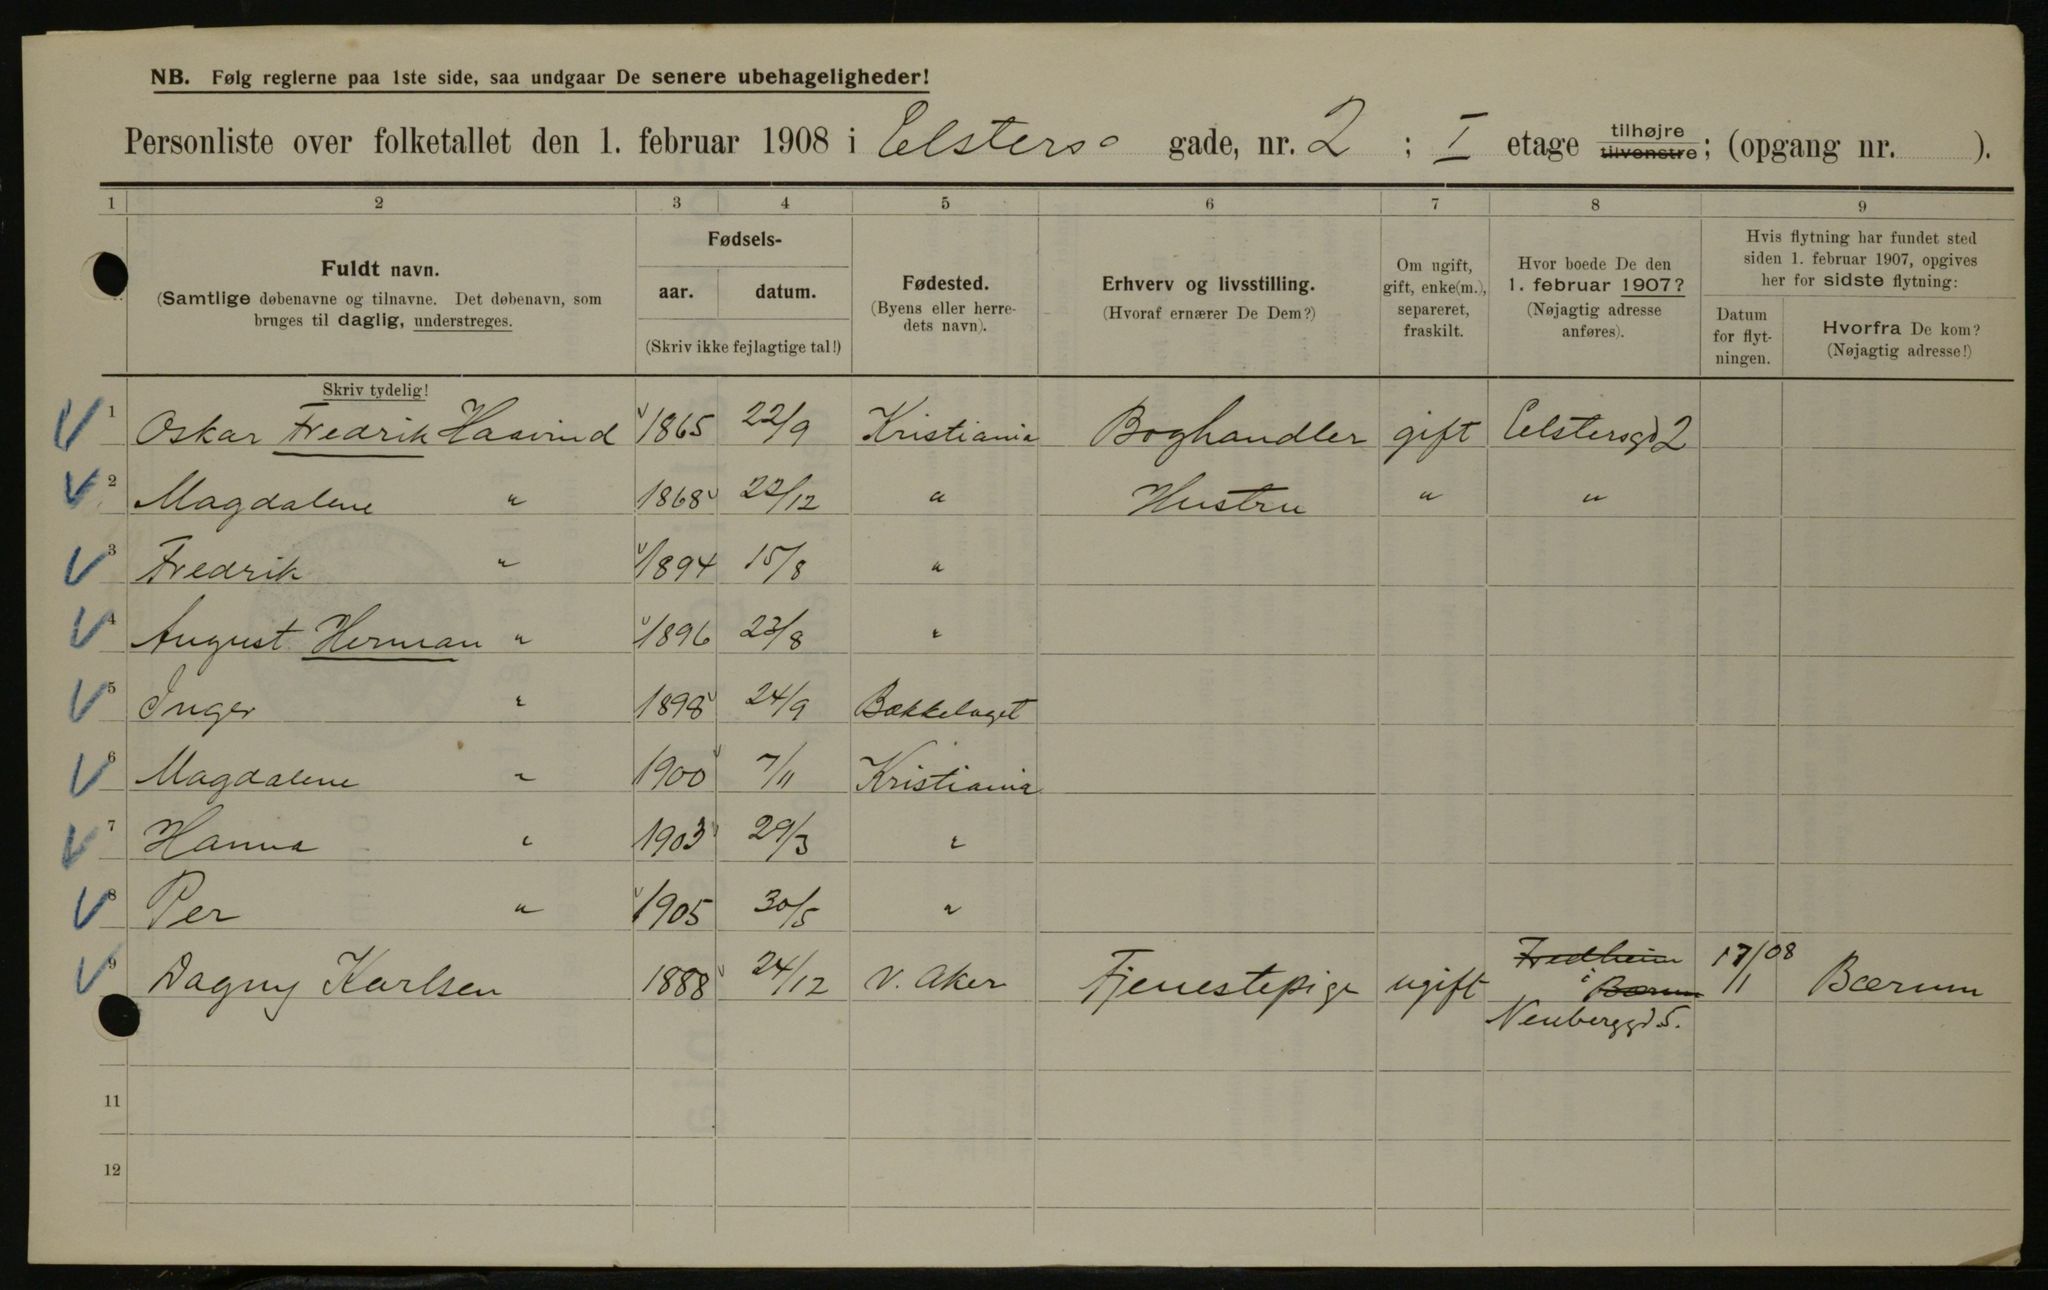 NB. Følg reglerne paa 1ste side, saa undgaar De senere ubehageligheder!
Personliste over folketallet den 1. februar 1908 i Eelsters gade, nr. 2 ; I etage tilhøjre tilvenstre; (opgang nr. ).
1 2 3 4 5 6 7 8 9
Fuldt navn.
(Samtlige døbenavne og tilnavne. Det døbenavn, som
bruges til daglig, understreges.
Skriv tydelig!
Fødsels-
aar. datum.
(Skriv ikke fejlagtige tal!)
Fødested.
(Byens eller herre-
dets navn).
Erhverv og livsstilling.
(Hvoraf ernærer De Dem?)
Om ugift,
gift, enke(m.),
separeret,
fraskilt.
Hvor boede De den
1. februar 1907?
(Nøjagtig adresse
anføres).
Hvis flytning har fundet sted
siden 1. februar 1907, opgives
her for sidste flytning:
Datum
for flyt-
ningen.
Hvorfra De kom?
(Nøjagtig adresse!)
1 Oskar Fredrik Haavind 1865 22/9 Kristiania Boghandler gift Eelstersgd 2
2 Magdalene " 1868 22/12 " Hustru " "
3 Fredrik " 1894 15/8 "
4 August Herman " 1896 23/8 "
5 Inger " 1898 24/9 Bækkelaget
6 Magdalene " 1900 7/11 Kristiania
7 Hanna " 1903 29/3 "
8 Per " 1905 30/5 "
9 Dagny Karlsen 1888 24/12 V. Aker Tjenestepige ugift Fredheim i Bærum 17/1 08 Bærum
Neuberggd 5.
11
12